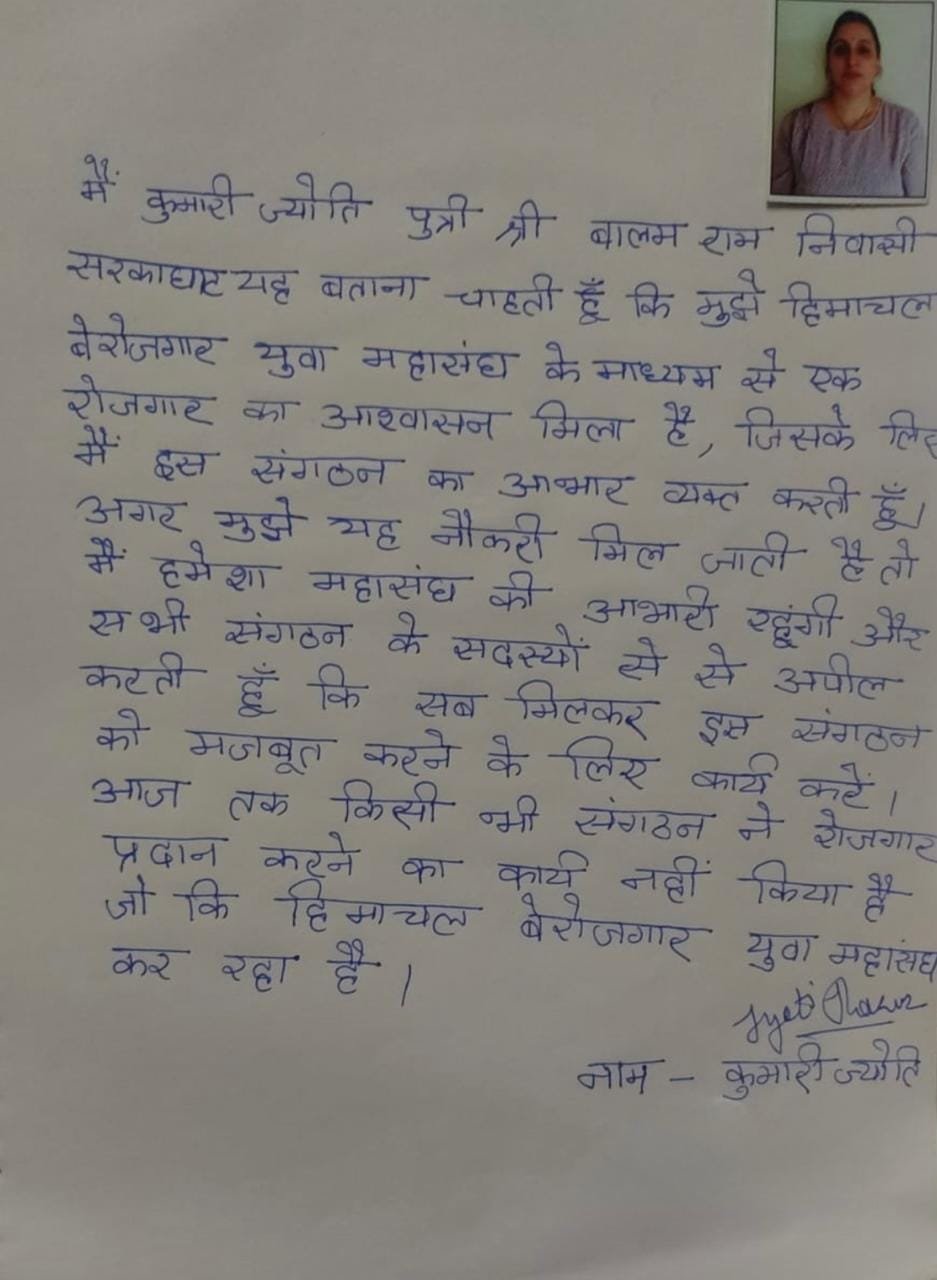 मैं कुमारी ज्योति पुत्री श्री बालम राम निवासी
सरकाघाट यह बताना चाहती हूँ कि मुझे हिमाचल
बेरोजगार युवा महासंघ के माध्यम से एक
रोजगार का आश्वासन मिला है, जिसके लिए
मैं इस संगठन का आभार व्यक्त करती हूँ।
अगर मुझे यह नौकरी मिल जाती है तो
मैं हमेशा महासंघ की आभारी रहूंगी और
सभी संगठन के सदस्यों से से अपील
करती हूँ कि सब मिलकर इस संगठन
को मजबूत करने के लिए कार्य करें।
आज तक किसी भी संगठन ने रोजगार
प्रदान करने का कार्य नहीं किया है
जो कि हिमाचल बेरोजगार युवा महासंघ
कर रहा है।
Jyoti Thakur
नाम - कुमारी ज्योति